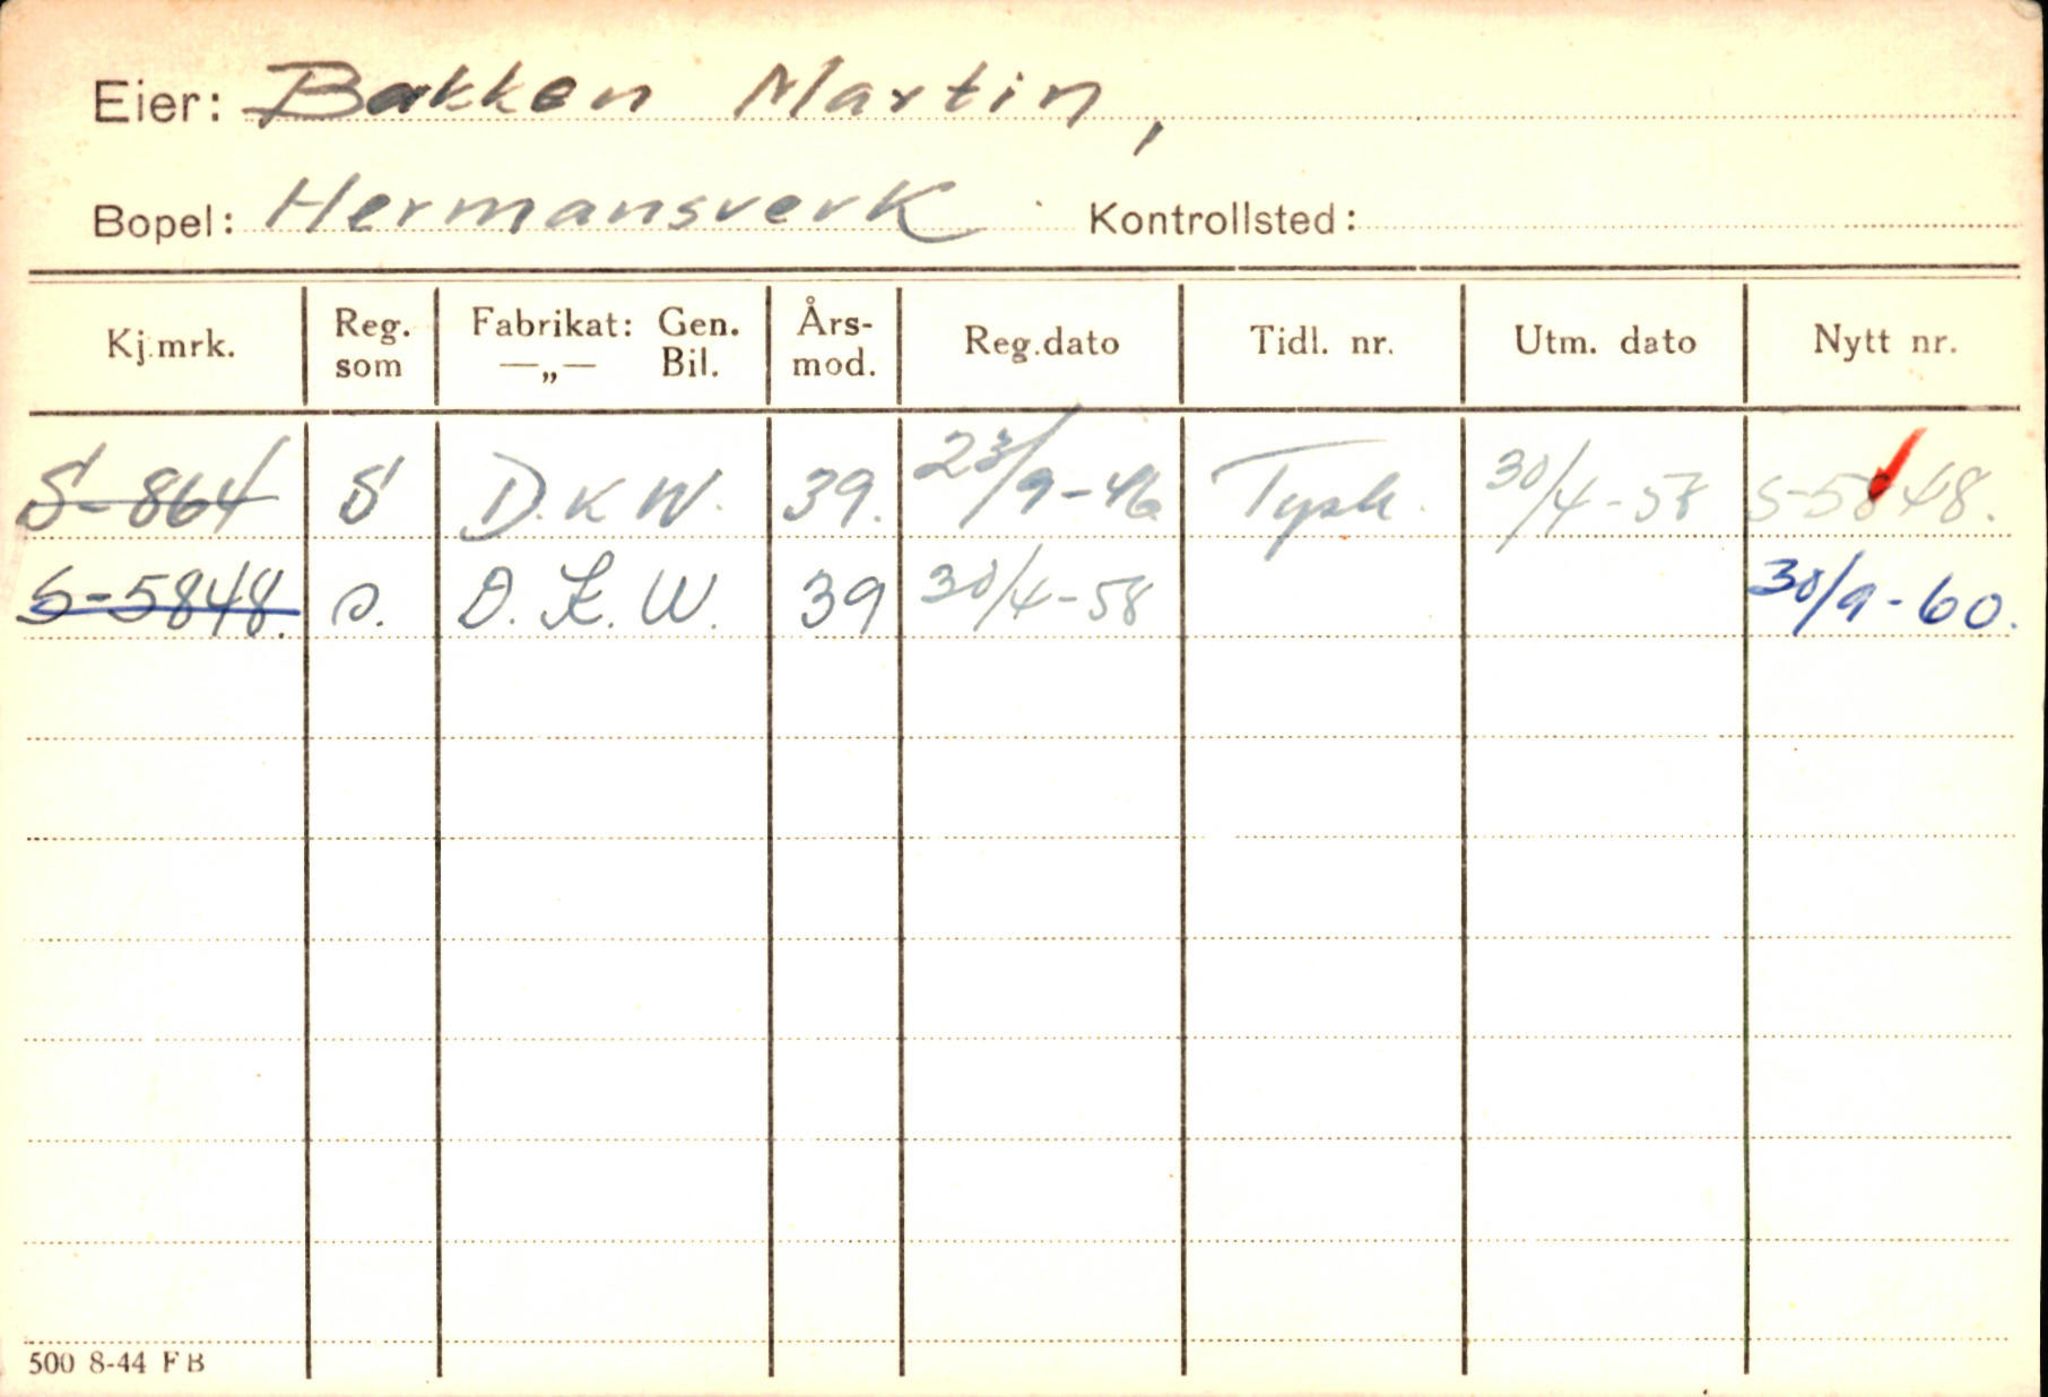 Eier: Bakken Martin,
Bopel: Hermansverk Kontrollsted:
Kj.mrk. Reg. som Fabrikat: Gen. —„— Bil. Års- mod. Reg.dato Tidl. nr. Utm. dato Nytt nr.
S-864 S D.K.W. 39. 23/9-46 Tysk. 30/4-58 S-5848.
S-5848. S. D.K.W. 39 30/4-58 30/9-60.
500 8-44 FB